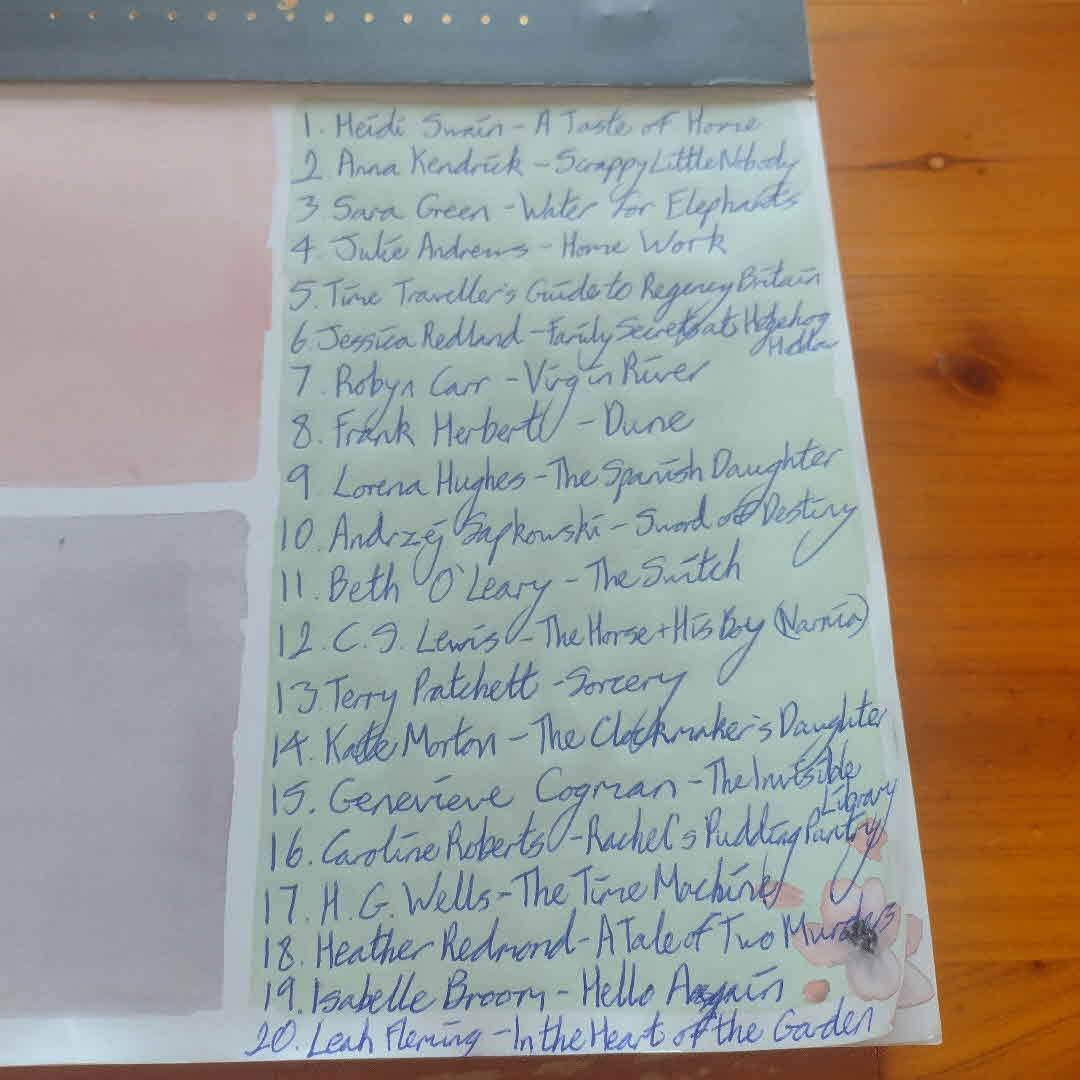 1. Heidi Swain - A Taste of Home
2. Anna Kendrick - Scrappy Little Nobody
3. Sara Green - Water for Elephants
4. Julie Andrews - Home Work
5. Time Traveller's Guide to Regency Britain
6. Jessica Redland - Family Secrets at Hedgehog
Hollow
7. Robyn Carr - Virgin River
8. Frank Herbert - Dune
9. Lorena Hughes - The Spanish Daughter
10. Andrzej Sapkowski - Sword of Destiny
11. Beth O'Leary - The Switch
12. C.S. Lewis - The Horse + His Boy (Narnia)
13. Terry Pratchett - Sorcery
14. Kate Morton - The Clockmaker's Daughter
15. Genevieve Cogman - The Invisible
Library
16. Caroline Roberts - Rachel's Pudding Pantry
17. H. G. Wells - The Time Machine
18. Heather Redmond - A Tale of Two Murders
19. Isabelle Broom - Hello Again
20. Leah Fleming - In the Heart of the Garden